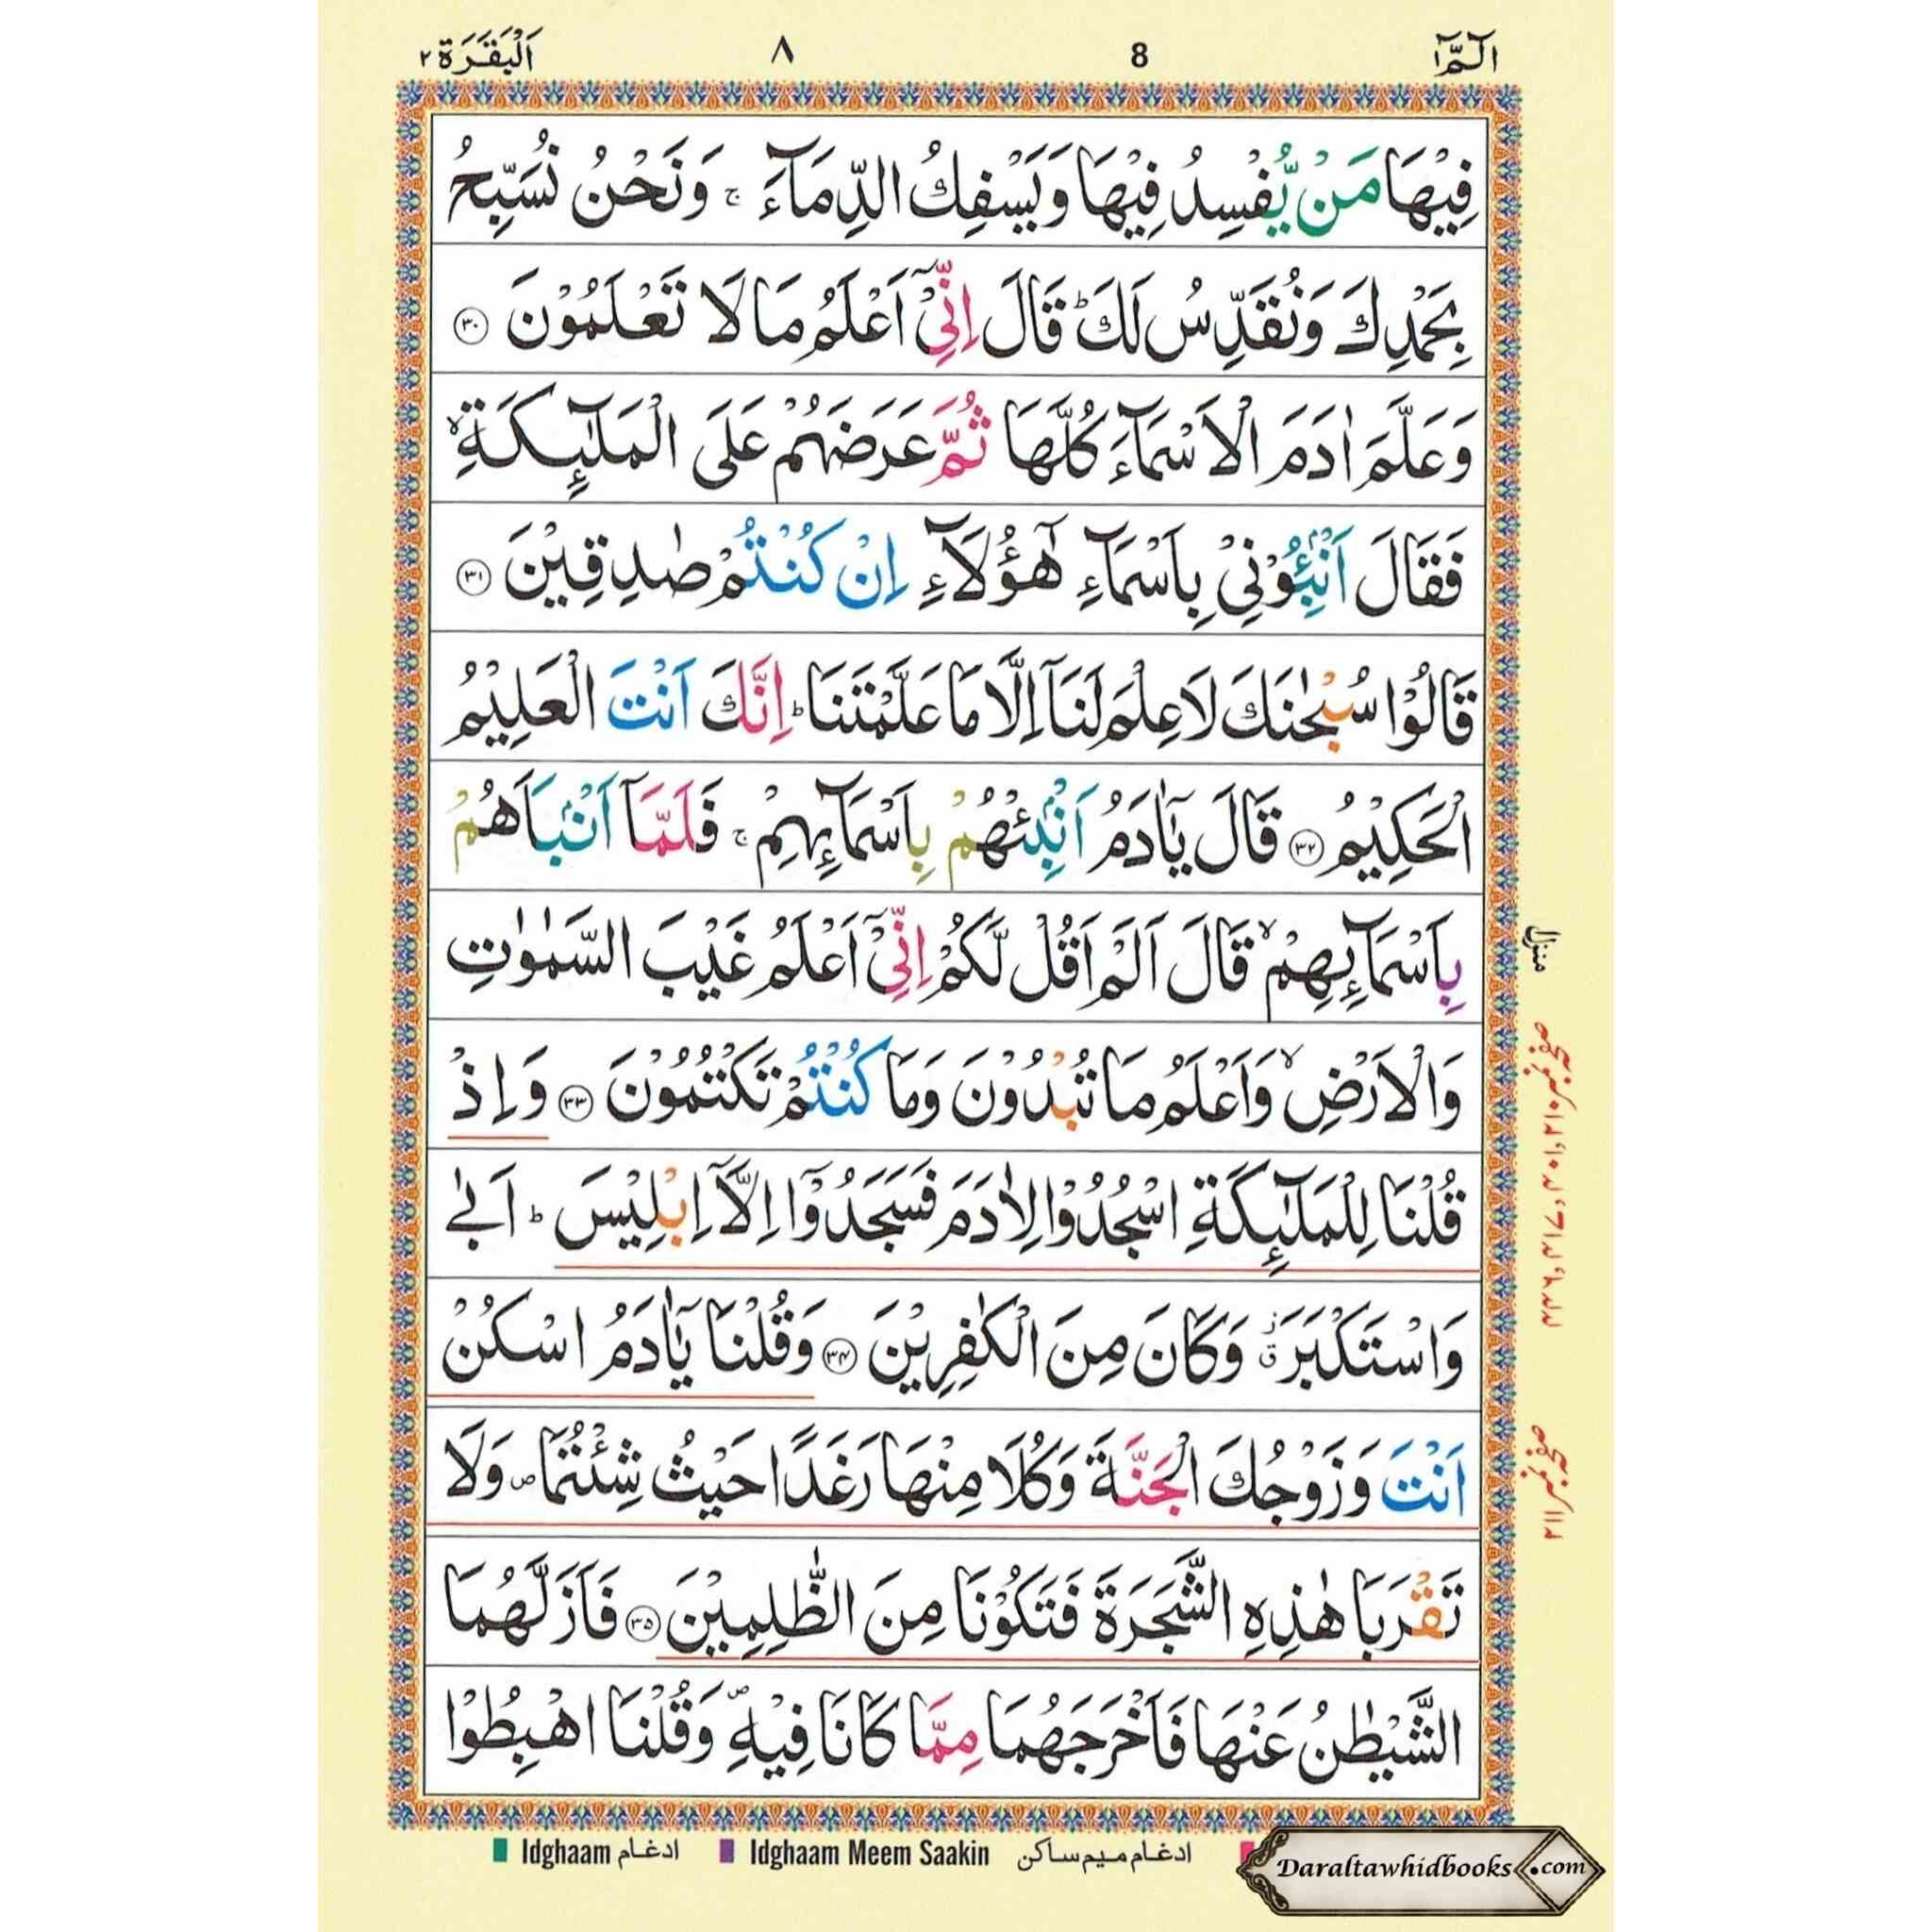 الٓـمّٓ ١ 8 ٨ اَلْبَقَرَة ٢
فِیْهَا مَنْ یُّفْسِدُ فِیْهَا وَیَسْفِكُ الدِّمَآءَ ۚ وَنَحْنُ نُسَبِّحُ
بِحَمْدِكَ وَنُقَدِّسُ لَكَ ؕ قَالَ اِنِّیْۤ اَعْلَمُ مَا لَا تَعْلَمُوْنَ ﴿۳۰﴾
وَعَلَّمَ اٰدَمَ الْاَسْمَآءَ كُلَّهَا ثُمَّ عَرَضَهُمْ عَلَی الْمَلٰٓىِٕكَةِ ۙ
فَقَالَ اَنْۢبِـُٔوْنِیْ بِاَسْمَآءِ هٰۤؤُلَآءِ اِنْ كُنْتُمْ صٰدِقِیْنَ ﴿۳۱﴾
قَالُوْا سُبْحٰنَكَ لَا عِلْمَ لَنَاۤ اِلَّا مَا عَلَّمْتَنَا ؕ اِنَّكَ اَنْتَ الْعَلِیْمُ
الْحَكِیْمُ ﴿۳۲﴾ قَالَ یٰۤاٰدَمُ اَنْۢبِئْهُمْ بِاَسْمَآىِٕهِمْ ۚ فَلَمَّاۤ اَنْۢبَاَهُمْ
بِاَسْمَآىِٕهِمْ ۙ قَالَ اَلَمْ اَقُلْ لَّكُمْ اِنِّیْۤ اَعْلَمُ غَیْبَ السَّمٰوٰتِ
وَالْاَرْضِ ۙ وَاَعْلَمُ مَا تُبْدُوْنَ وَمَا كُنْتُمْ تَكْتُمُوْنَ ﴿۳۳﴾ وَاِذْ
قُلْنَا لِلْمَلٰٓىِٕكَةِ اسْجُدُوْا لِاٰدَمَ فَسَجَدُوْۤا اِلَّاۤ اِبْلِیْسَ ؕ اَبٰی
وَاسْتَكْبَرَ ۗ وَكَانَ مِنَ الْكٰفِرِیْنَ ﴿۳۴﴾ وَقُلْنَا یٰۤاٰدَمُ اسْكُنْ
اَنْتَ وَزَوْجُكَ الْجَنَّةَ وَكُلَا مِنْهَا رَغَدًا حَیْثُ شِئْتُمَا ۪ وَلَا
تَقْرَبَا هٰذِهِ الشَّجَرَةَ فَتَكُوْنَا مِنَ الظّٰلِمِیْنَ ﴿۳۵﴾ فَاَزَلَّهُمَا
الشَّیْطٰنُ عَنْهَا فَاَخْرَجَهُمَا مِمَّا كَانَا فِیْهِ ۪ وَقُلْنَا اهْبِطُوْا
منزل
Idghaam ادغام Idghaam Meem Saakin ادغام میم ساکن
Daraltawhidbooks.com